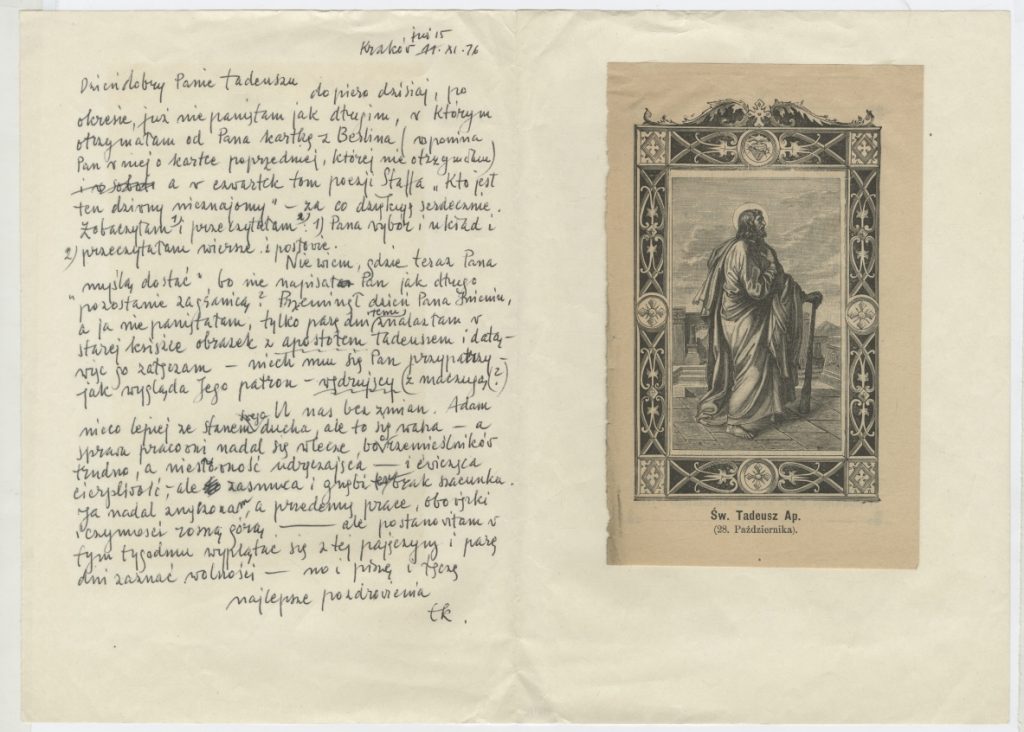 już 15
Kraków 11. XI. 76
Dzieńdobry Panie Tadeuszu
dopiero dzisiaj, po
okresie, już nie pamiętam jak długim, w którym
otrzymałam od Pana kartkę z Berlina (wspomina
Pan w niej o kartce poprzedniej, której nie otrzymałam)
a w czwartek tom poezji Staffa „Kto jest
ten dziwny nieznajomy" – za co dziękuję serdecznie.
Zobaczyłam 1) i przeczytałam 2): 1) Pana wybór i układ i
2) przeczytałam wiersze i posłowie.
Nie wiem, gdzie teraz Pana
myślą dostać, bo nie napisał Pan jak długo
pozostanie zagranicą? Przeminął dzień Pana Imienin,
a ja nie pamiętałam, tylko parę dni temu znalazłam w
starej książce obrazek z apostołem Tadeuszem i datą,
więc go załączam – niech mu się Pan przypatrzy –
jak wygląda Jego patron – wędrujący (z maczugą?)
U nas bez zmian. Adam
nieco lepiej ze stanem swego ducha, ale to się waha – a
sprawa pracowni nadal się wlecze, bo rzemieślników
trudno, a niesłowność udręczająca – i ćwicząca
cierpliwość, – ale zasmuca i gnębi brak szacunku.
Ja nadal zmęczona, a przedemną prace, obowiązki
i czynności rosną górą, – ale postanowiłam w
tym tygodniu wyplątać się z tej pajęczyny i parę
dni zaznać wolności – no i piszę i łączę
najlepsze pozdrowienia
tk.
Św. Tadeusz Ap.
(28. Października).